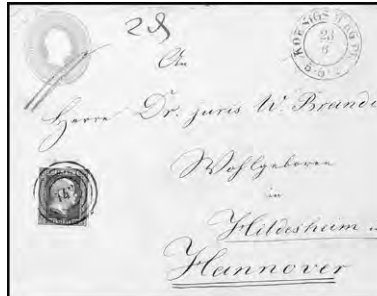 KOENIGSBERG PR.
23
6
An
Herrn Dr. juris W. Brande
Wohlgeboren
in
Hildesheim
Hannover